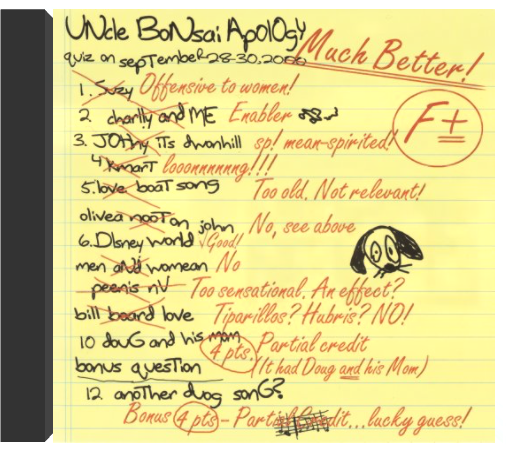 UNcle BoNsai ApolOgY
Much Better!
quiz on sepTembeR 28-30, 2000
F±
1. Suzy Offensive to women!
2 charlly and ME Enabler
3. JOHNy iTs dwnhill sp! mean-spirited!
4 KmarT looonnnnnng!!!
5. love boaT song Too old. Not relevant!
olivea nooT on john No, see above
6. DIsney world √Good!
men aNd womean No
peenis nV Too sensational. An effect?
bill board love Tiparillos? Hubris? NO!
10 douG and his mom 4 pts. Partial credit
bonus quesTion (It had Doug and his Mom)
12 anoTher dug sonG?
Bonus 4 pts - Partial Credit...lucky guess!